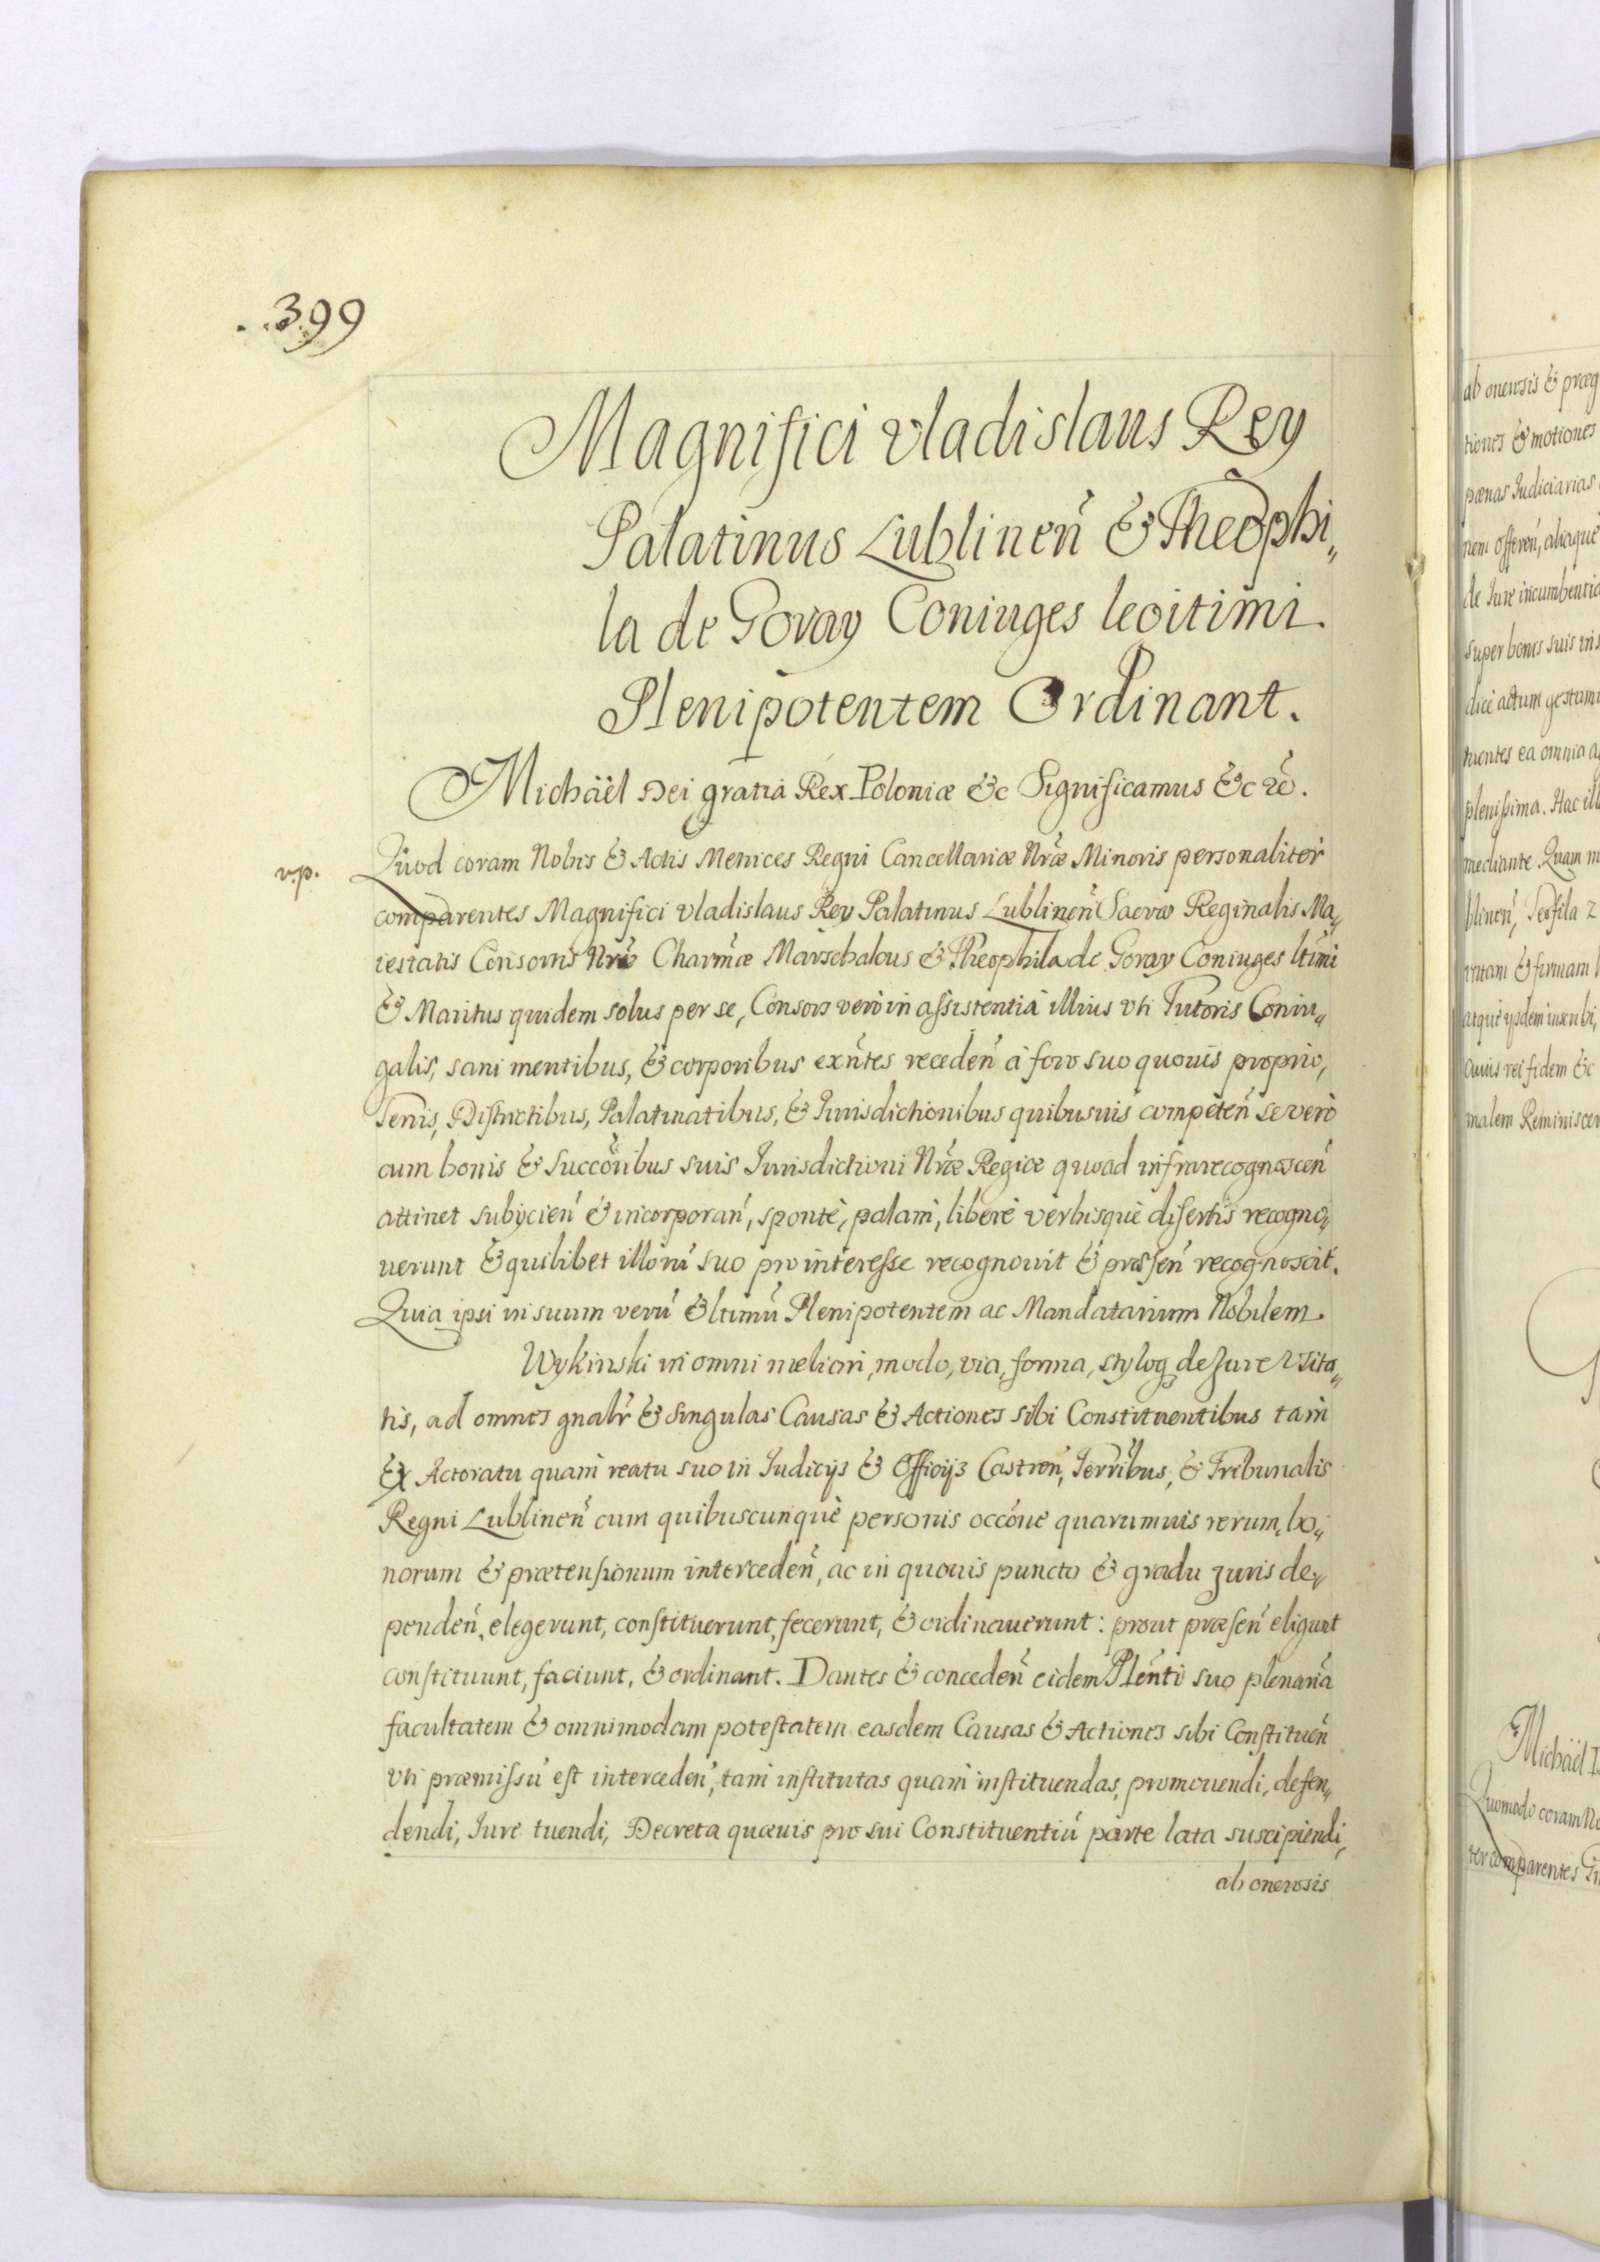 399
Magnifici Vladislaus Rey
Palatinus Lublineñ & Theophi,,
la de Goray Coniuges legitimi.
Plenipotentem Ordinant.
Michäel Dei gratia Rex Poloniæ &c Significamus &c rẽ.
v.p.
Quod coram Nobis & Actis Metrices Regni Cancellariæ Nræ Minoris personaliter
comparentes Magnifici Vladislaus Rey Palatinus Lublineñ Sacræ Reginalis Ma,,
iestatis Consortis Nræ Charmæ Marschalcus & Theophila de Goray Coniuges ltimi
& Maritus quidem solus per se, Consors verò in assistentia illius vti Tutoris Coniu,,
galis, sani mentibus, & corporibus exñtes recedeñ à foro suo quouis proprio,
Terris, Districtibus, Palatinatibus, & Iurisdictionibus quibusuis competeñ se verò
cum bonis & Succõribus suis Iurisdictioni Nræ Regiæ quoad infrarecognosceñ
attinet subijcieñ & incorporañ, spontè, palam, liberè verbisquè disertis recogno,,
uerunt & quilibet illorũ suo pro interesse recognouit & præseñ recognoscit.
Quia ipsi in suum verũ & ltimũ Plenipotentem ac Mandatarium Nobilem
Wykinski in omni meliori, modo, via, forma, styloq de Iure Vsita,,
tis, ad omnes gnalr & Singulas Causas & Actiones sibi Constituentibus tam
Ex Actoratu quam reatu suo in Iudicijs & Officijs Castreñ, Terrĩbus, & Tribunalis
Regni Lublineñ cum quibuscunquè personis occõne quarumuis rerum, bo,,
norum & prætensionum intercedeñ, ac in quouis puncto & gradu Iuris de,,
pendeñ, elegerunt, constituerunt, fecerunt, & ordinauerunt: prout præseñ eligunt
constituunt, faciunt, & ordinant. Dantes & concedeñ eidem Plẽnti suo plenariã
facultatem & omnimodam potestatem easdem Causas & Actiones sibi Constitueñ
vti præmissũ est intercedeñ, tam institutas quam instituendas, promouendi, defen,,
dendi, Iure tuendi, Decreta quæuis pro sui Constituentiũ parte lata suscipiendi,
ab onerosis
ab onerosis & præg
tiones & motiones
pœnas Iudiciarias
nem offereñ, aliaque
de Iure incumbentia
super bonis suis
dicè actum gestum
tuentes ea omnia
plenissima. Hac
mediante. Quam
blineñ, Teofila z
ratam & firmam
atque ijsdem inscribi,
cuius rei fidem &c
malem Reminiscer
Michäel
Quomodo coram No
ter comparentes